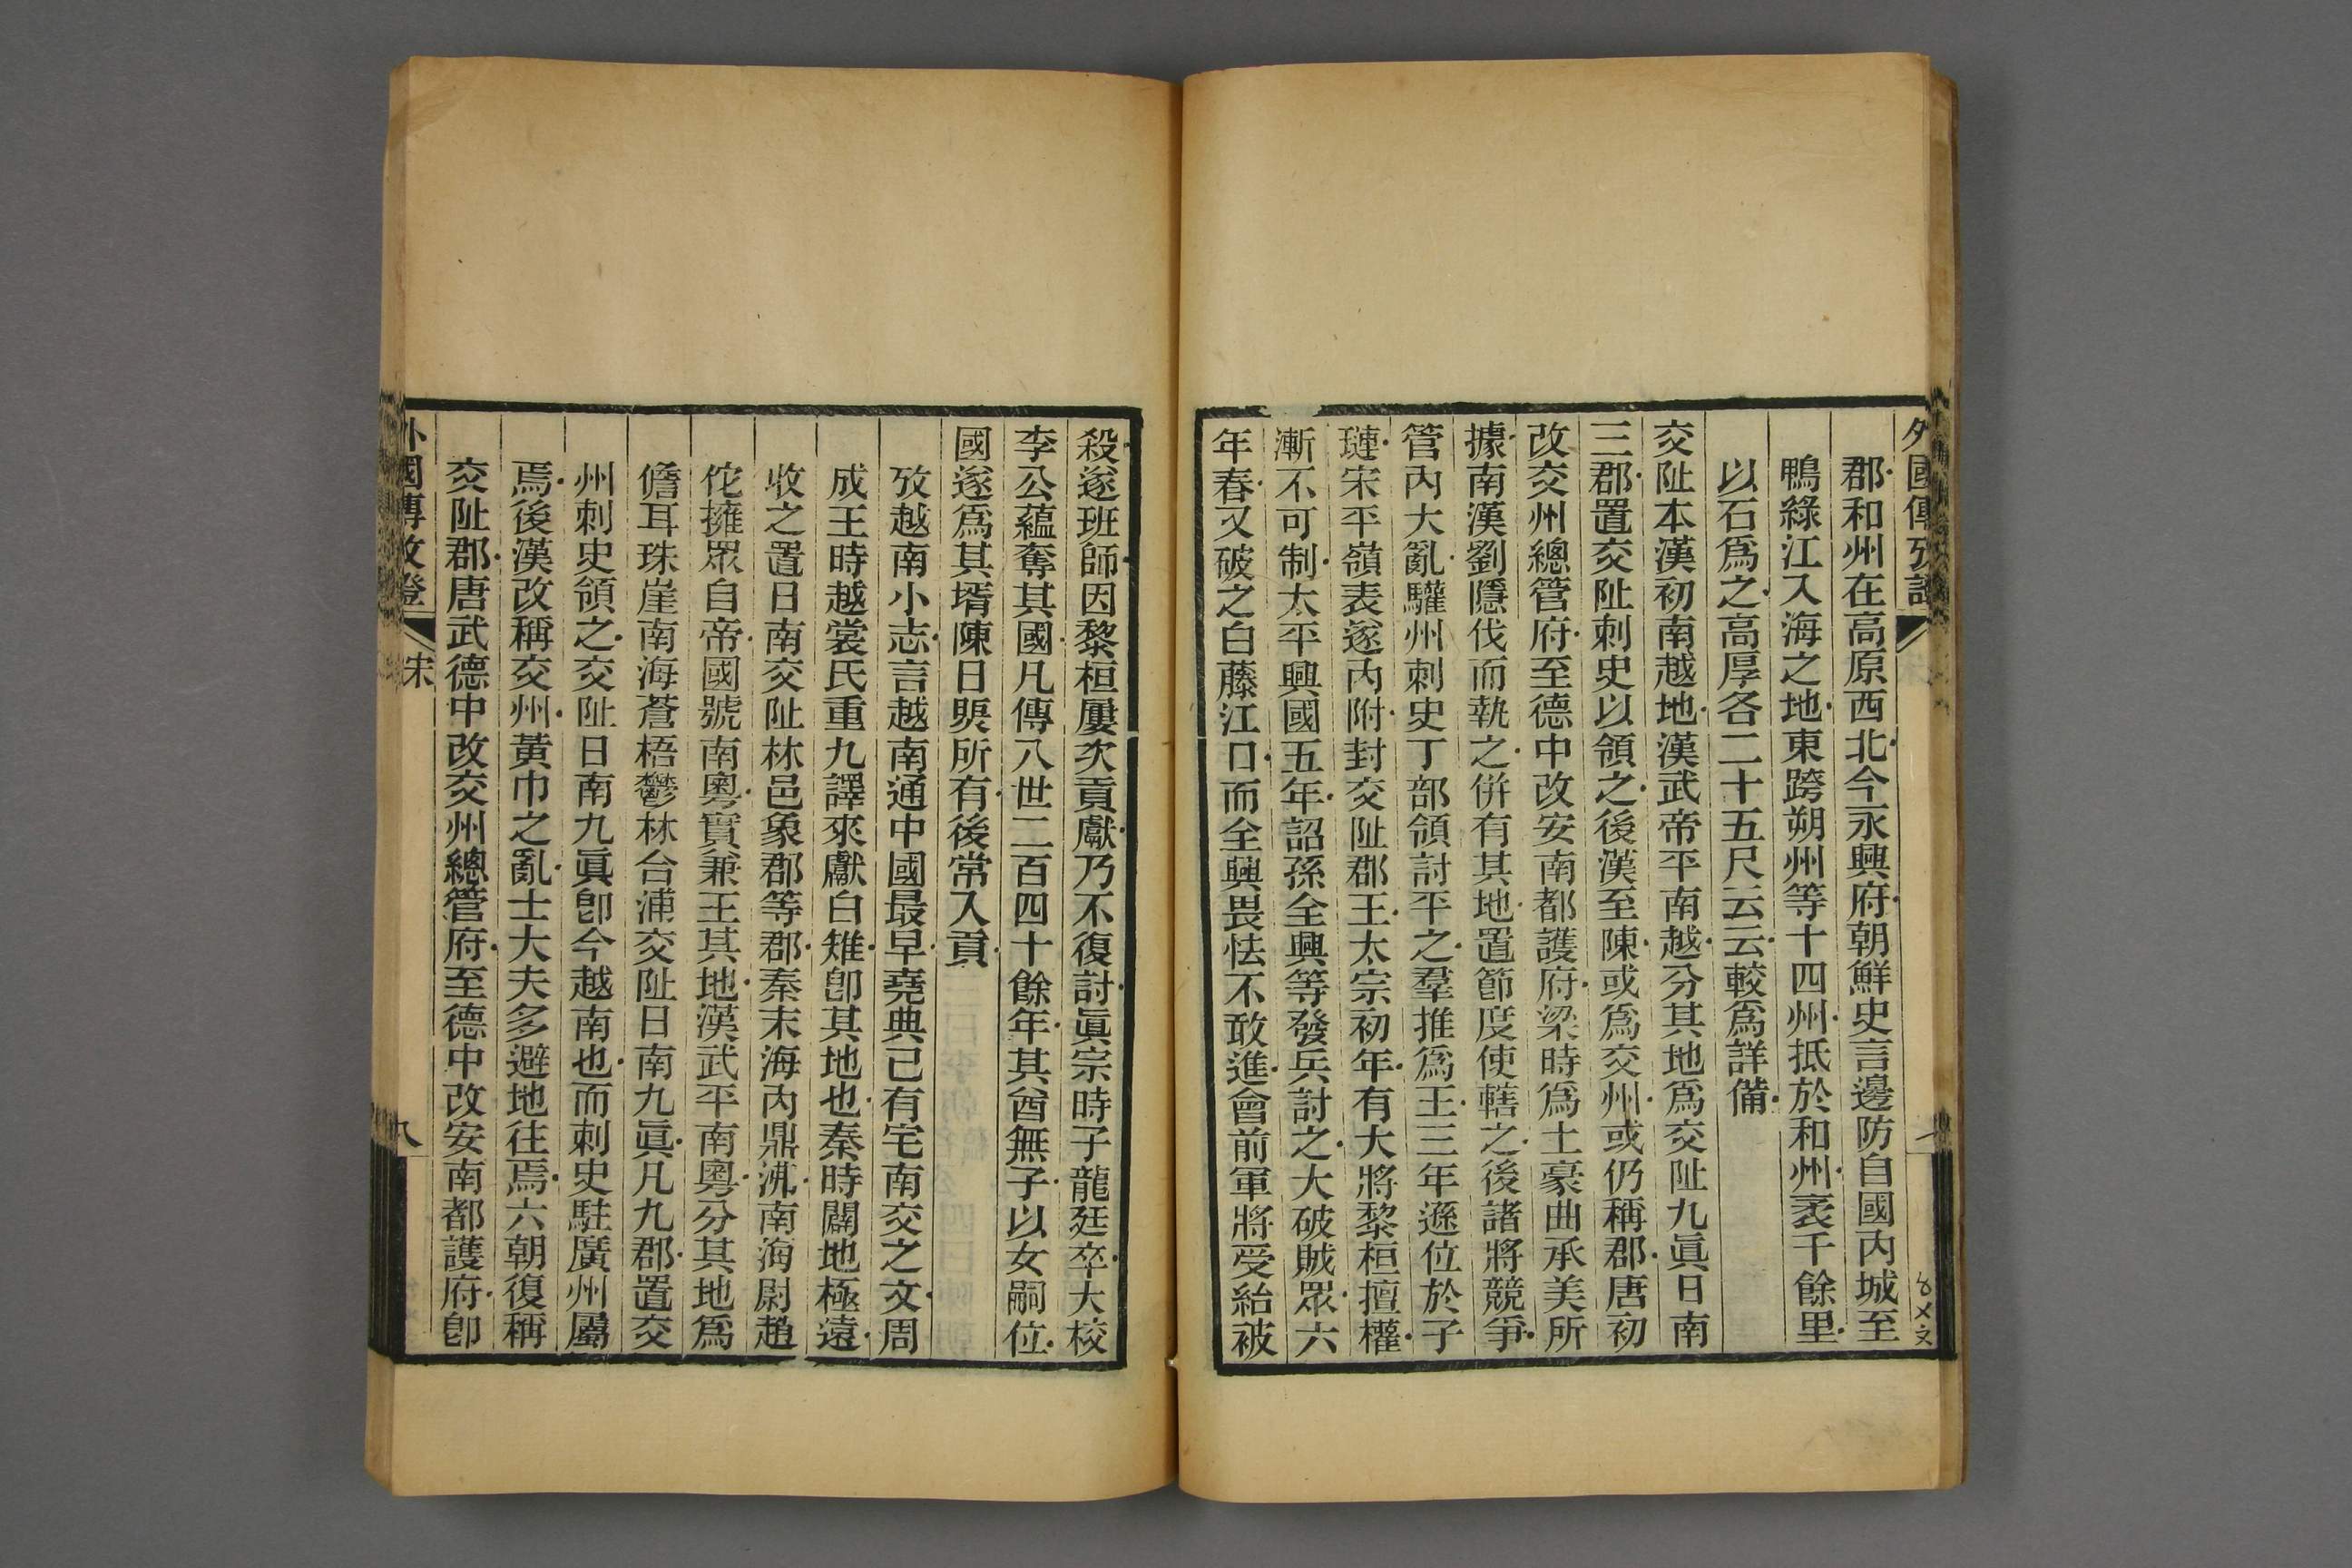 外國傳攷證
郡和州在高原西北今永興府朝鮮史言邊防自國內城至
鴨綠江入海之地東跨朔州等十四州抵於和州袤千餘里
以石爲之高厚各二十五尺云云較爲詳備
交阯本漢初南越地漢武帝平南越分其地爲交阯九眞日南
三郡置交阯刺史以領之後漢至陳或爲交州或仍稱郡唐初
改交州總管府至德中改安南都護府梁時爲土豪曲承美所
據南漢劉隱伐而執之併有其地置節度使轄之後諸將競爭
管內大亂驩州刺史丁部領討平之羣推爲王三年遜位於子
璉宋平嶺表遂內附封交阯郡王太宗初年有大將黎桓擅權
漸不可制太平興國五年詔孫全興等發兵討之大破賊眾六
年春又破之白藤江口而全興畏怯不敢進會前軍將受紿被
殺遂班師因黎桓屢次貢獻乃不復討眞宗時子龍廷卒大校
李公蘊奪其國凡傳八世二百四十餘年其酋無子以女嗣位
國遂爲其壻陳日煚所有後常入貢
攷越南小志言越南通中國最早堯典已有宅南交之文周
成王時越裳氏重九譯來獻白雉卽其地也秦時闢地極遠
收之置日南交阯林邑象郡等郡秦末海內鼎沸南海尉趙
佗擁眾自帝國號南粵實兼王其地漢武平南粵分其地爲
儋耳珠崖南海蒼梧鬱林合浦交阯日南九眞凡九郡置交
州刺史領之交阯日南九眞卽今越南也而刺史駐廣州屬
焉後漢改稱交州黃巾之亂士大夫多避地往焉六朝復稱
交阯郡唐武德中改交州總管府至德中改安南都護府卽
外國傳攷證
宋
八